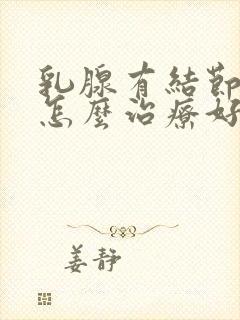 乳腺有結節
怎麼治療好
姜靜